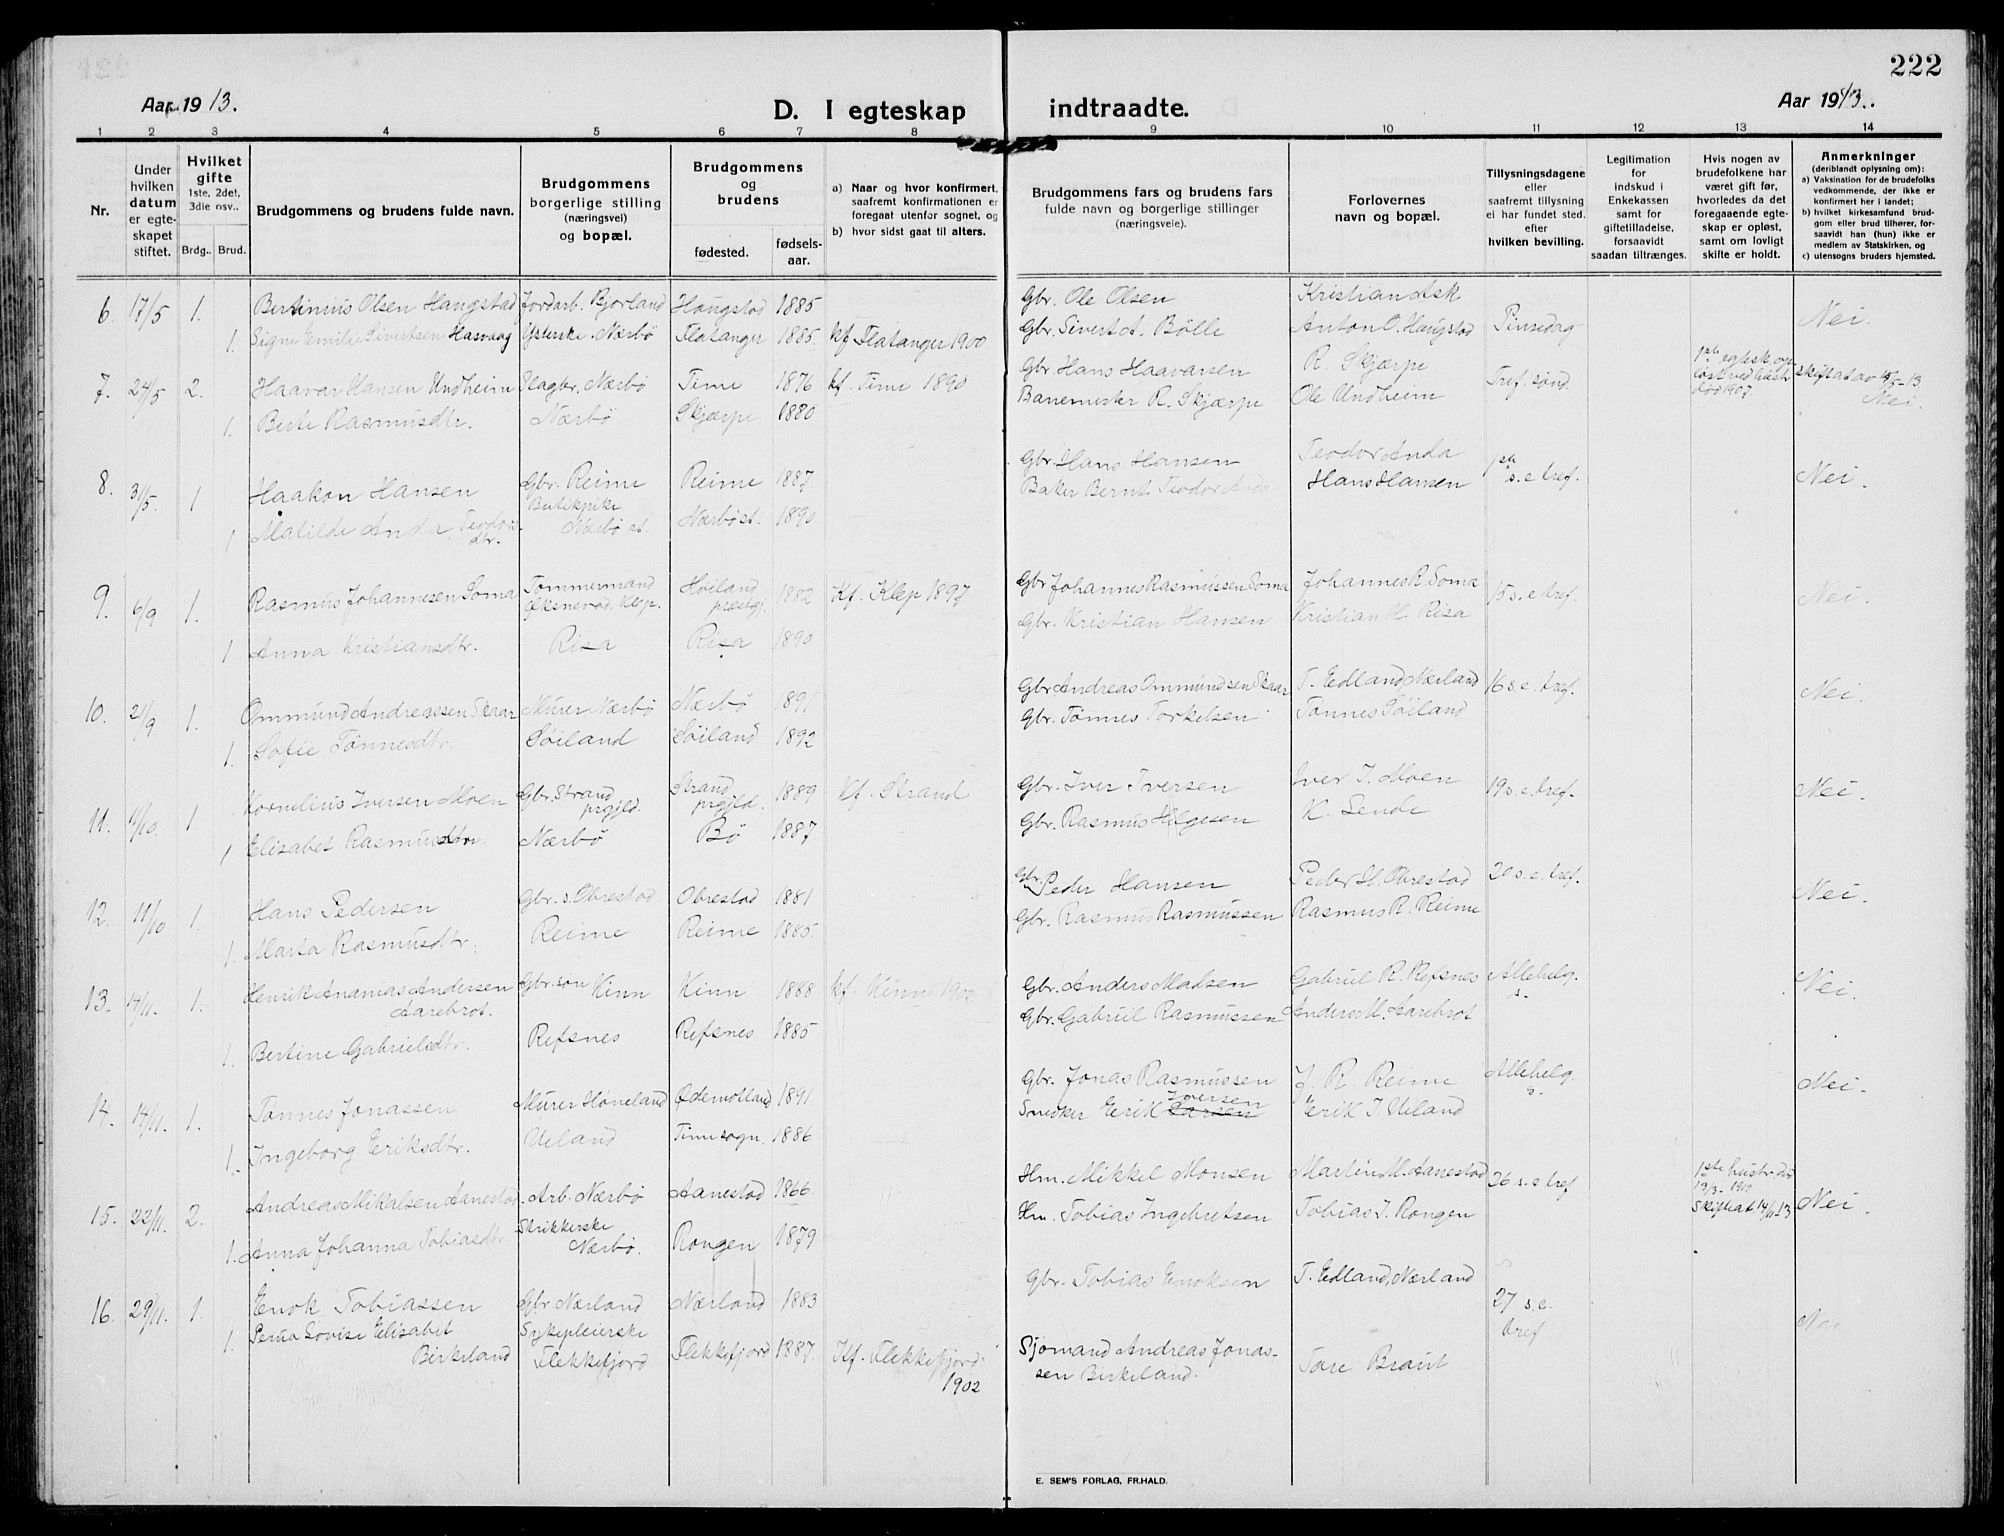 222
Aar 1913.
D. I egteskap indtraadte.
Aar 1913.
1 2 3 4 5 6 7 8 9 10 11 12 13 14
Nr.
Under hvilken datum er egteskapet stiftet.
Hvilket gifte
1ste, 2det, 3die osv..
Brdg.. Brud.
Brudgommens og brudens fulde navn.
Brudgommens borgerlige stilling (næringsvei) og bopæl.
Brudgommens og brudens
fødested. fødsels-aar.
a) Naar og hvor konfirmert, saafremt konfirmationen er foregaat utenfor sognet, og
b) hvor sidst gaat til alters.
Brudgommens fars og brudens fars fulde navn og borgerlige stillinger (næringsveie).
Forlovernes navn og bopæl.
Tillysningsdagene eller saafremt tillysning ei har fundet sted. efter hvilken bevilling.
Legitimation for indskud i Enkekassen samt for giftetilladelse, forsaavidt saadan tiltrænges.
Hvis nogen av brudefolkene har været gift før, hvorledes da det foregaaende egteskap er opløst, samt om lovligt skifte er holdt.
Anmerkninger (deriblandt oplysning om):
a) Vaksination for de brudefolks vedkommende, der ikke er konfirmert her i landet;
b) hvilket kirkesamfund brudgom eller brud tilhører, forsaavidt han (hun) ikke er medlem av Statskirken, og
c) utensogns bruders hjemsted.
6. 17/5 1. Bertinius Olsen Haugstad Jordarb. Bjorland Haugstad 1885 Gbr. Ole Olsen Kristian Ask
1. Signe Emilie Sivertsen Hasvaag Ysterske. Nærbö Flatanger 1885. kf Flatanger 1900 Gbr. Sivert A. Bölle Anton O. Haugstad Pinsedag Nei.
7. 24/5 2. Haavar Hansen Undheim Slagter. Nærbö Time 1876 kf. Time 1890 Gbr Hans Haavarsen R. Skjærpe Tref. sønd. 1ste egtesk. opløst ved hustr död 1907. skifteat av 15/5-13
1. Berte Rasmusdtr. Nærbö Skjærpe 1880 Banemester R. Skjærpe Ole Undheim Nei.
8. 31/5. 1 Haakon Hansen Gbr. Reime Reime 1887 Gbr. Hans Hansen Teodor Anda 1ste s. e tref. Nei.
1 Matilde Anda Teodorsdtr. Butikpike Nærbö st. Nærbö st. 1890 Baker Bernt Teodor Anda Hans Hansen
9. 6/9 1. Rasmus Johannesen Soma Tømmermand Øksnevad, Klep. Høiland prestgj. 1882 Kf. Klep 1897 Gbr Johannes Rasmussen Soma Johannes R. Soma 15 s. e tref. Nei.
1 Anna Kristiansdtr. Risa Risa 1890 Gbr. Kristian Hansen Kristian H. Risa
10. 21/9 1. Ommund Andreassen Skaar Murer Nærbö Nærbö 1891 Gbr Andreas Ommundsen Skaar T. Edland, Nærland 16 s. e. tref. Nei.
1. Sofie Tönnesdtr. Söiland Söiland 1892 Gbr. Tönnes Torkelsen Tönnes Söiland
11. 11/10. 1 Kornelius Iversen Moen Gbr. Strand prgjld. Strand prgjld. 1889 Kf. Strand Gbr. Iver Iversen Iver I. Moen 19 s. e. tref. Nei.
1 Elisabet Rasmusdtr. Nærbö Bö 1887 Gbr. Rasmus Helgesen K. Sende
12. 11/10 1. Hans Pedersen Gbr. s. Obrestad Obrestad 1881 Gbr. Peder Hansen Peder H. Obrestad 20 s. e. tref. Nei.
1. Marta Rasmusdtr. Reime Reime 1885. Gbr. Rasmus Rasmussen Rasmus R. Reime
13. 14/11. 1. Henrik Ananias Andersen Aarebrot. Gbr. søn Kinn Kinn 1888 kf. Kinn 1902 Gbr. Anders Madsen Gabriel R. Refsnes Allehelg. s. Nei.
1. Bertine Gabrielsdtr. Refsnes Refsnes 1885 Gbr. Gabriel Rasmussen Anders M. Aarebrot
14. 14/11. 1. Tönnes Jonassen Murer Höneland Ödemotland 1891 Gbr. Jonas Rasmussen J. R. Reime Allehelg. s. Nei.
1. Ingeborg Eriksdtr. Ueland Time sogn. 1886 Snedker Erik Iversen Erik I. Ueland
15. 22/11. 2. Andreas Mikalsen Aanestad. Arb. Nærbö Aanestad 1866 Hm. Mikkel Monsen Martin M. Aanestad 26 s. e tref 1ste hustr. död 13/3-1912 Skifteat. 14/11 13 Nei.
1. Anna Johanna Tobiasdtr Strikkerske Nærbö. Rongen 1879 Hm. Tobias Ingebretsen Tobias I. Rongen
16. 29/11. 1. Enok Tobiassen Gbr. Nærland Nærland 1883 Gbr. Tobias Enoksen T. Edland, Nærland 27 s. e. tref
1. Petra Lovise Elisabet Birkeland Sykepleierske Flekkefjord Flekkefjord 1887. Kf. Flekkefjord 1902 Sjømand Andreas Jonassen Birkeland. Tore Braut Nei
E. SEM'S FORLAG, FR.HALD.